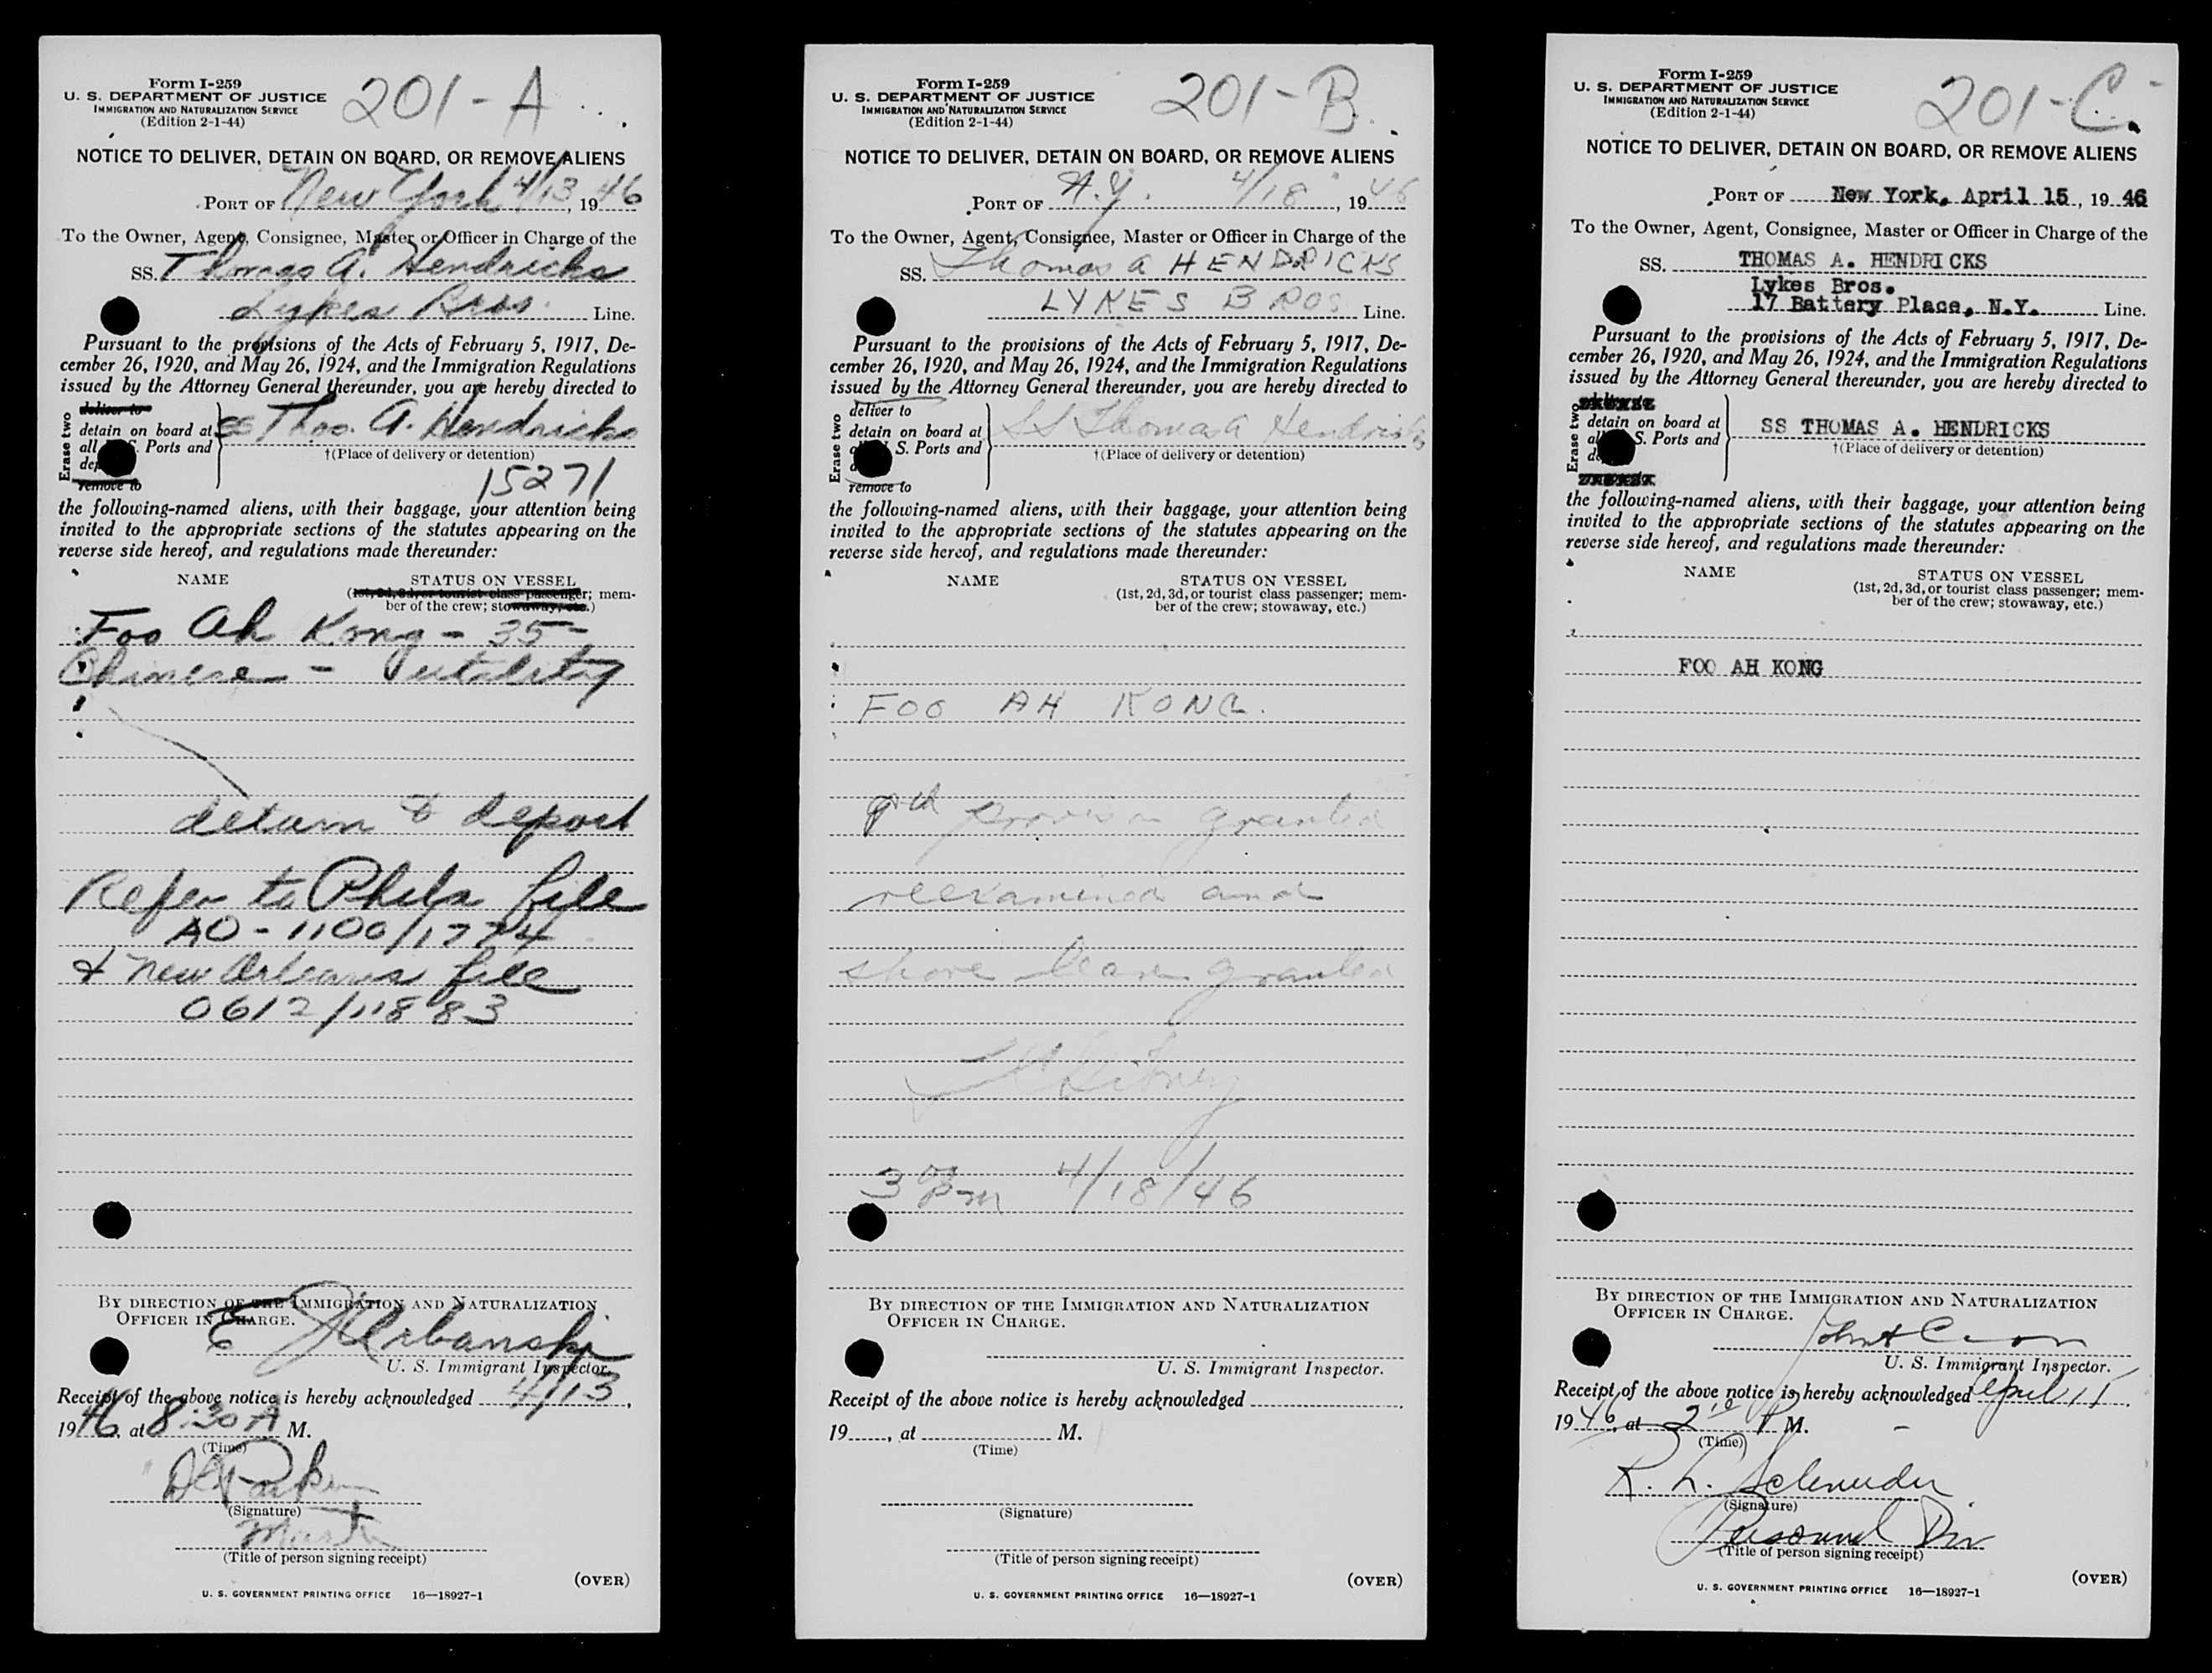 Form I-259
U. S. DEPARTMENT OF JUSTICE
IMMIGRATION AND NATURALIZATION SERVICE
(Edition 2-1-44)
201-A
NOTICE TO DELIVER, DETAIN ON BOARD, OR REMOVE ALIENS
PORT OF New York 4/13, 1946
To the Owner, Agent, Consignee, Master or Officer in Charge of the
SS. Thomas A. Hendricks
Lykes Bros. Line.
Pursuant to the provisions of the Acts of February 5, 1917, De-
cember 26, 1920, and May 26, 1924, and the Immigration Regulations
issued by the Attorney General thereunder, you are hereby directed to
Erase two
deliver to
detain on board at
all S. Ports and
remove to
Thos. A. Hendricks
†(Place of delivery or detention)
15271
the following-named aliens, with their baggage, your attention being
invited to the appropriate sections of the statutes appearing on the
reverse side hereof, and regulations made thereunder:
NAME STATUS ON VESSEL
(1st, 2d, 3d, or tourist class passenger; mem-
ber of the crew; stowaway, etc.)
Foo Ah Kong - 35 -
Chinese -
detain & deport
Refer to Phila file
AO-1100/1774
& New Orleans file
0612/11883
BY DIRECTION OF THE IMMIGRATION AND NATURALIZATION
OFFICER IN CHARGE.
Urbanski
U. S. Immigrant Inspector.
Receipt of the above notice is hereby acknowledged 4/13,
1946, at 8:30 A M.
(Time)
(Signature)
(Title of person signing receipt)
(OVER)
U. S. GOVERNMENT PRINTING OFFICE 16—18927-1
Form I-259
U. S. DEPARTMENT OF JUSTICE
IMMIGRATION AND NATURALIZATION SERVICE
(Edition 2-1-44)
201-B
NOTICE TO DELIVER, DETAIN ON BOARD, OR REMOVE ALIENS
PORT OF N.Y. 4/18, 1946
To the Owner, Agent, Consignee, Master or Officer in Charge of the
SS. Thomas A HENDRICKS
LYKES BROS Line.
Pursuant to the provisions of the Acts of February 5, 1917, De-
cember 26, 1920, and May 26, 1924, and the Immigration Regulations
issued by the Attorney General thereunder, you are hereby directed to
Erase two
deliver to
detain on board at
S. Ports and
remove to
SS Thomas A Hendricks
†(Place of delivery or detention)
the following-named aliens, with their baggage, your attention being
invited to the appropriate sections of the statutes appearing on the
reverse side hereof, and regulations made thereunder:
NAME STATUS ON VESSEL
(1st, 2d, 3d, or tourist class passenger; mem-
ber of the crew; stowaway, etc.)
FOO AH KONG.
granted
reexamined and
shore leave granted
3 PM 4/18/46
BY DIRECTION OF THE IMMIGRATION AND NATURALIZATION
OFFICER IN CHARGE.
U. S. Immigrant Inspector.
Receipt of the above notice is hereby acknowledged
19, at M.
(Time)
(Signature)
(Title of person signing receipt)
(OVER)
U. S. GOVERNMENT PRINTING OFFICE 16—18927-1
Form I-259
U. S. DEPARTMENT OF JUSTICE
IMMIGRATION AND NATURALIZATION SERVICE
(Edition 2-1-44)
201-C
NOTICE TO DELIVER, DETAIN ON BOARD, OR REMOVE ALIENS
PORT OF New York, April 15, 1946
To the Owner, Agent, Consignee, Master or Officer in Charge of the
SS. THOMAS A. HENDRICKS
Lykes Bros.
17 Battery Place, N.Y. Line.
Pursuant to the provisions of the Acts of February 5, 1917, De-
cember 26, 1920, and May 26, 1924, and the Immigration Regulations
issued by the Attorney General thereunder, you are hereby directed to
Erase two
detain on board at
S. Ports and
SS THOMAS A. HENDRICKS
†(Place of delivery or detention)
the following-named aliens, with their baggage, your attention being
invited to the appropriate sections of the statutes appearing on the
reverse side hereof, and regulations made thereunder:
NAME STATUS ON VESSEL
(1st, 2d, 3d, or tourist class passenger; mem-
ber of the crew; stowaway, etc.)
FOO AH KONG
BY DIRECTION OF THE IMMIGRATION AND NATURALIZATION
OFFICER IN CHARGE.
U. S. Immigrant Inspector.
Receipt of the above notice is hereby acknowledged April 15,
1946, at 2 P M.
(Time)
(Signature)
Personnel Div
(Title of person signing receipt)
(OVER)
U. S. GOVERNMENT PRINTING OFFICE 16—18927-1